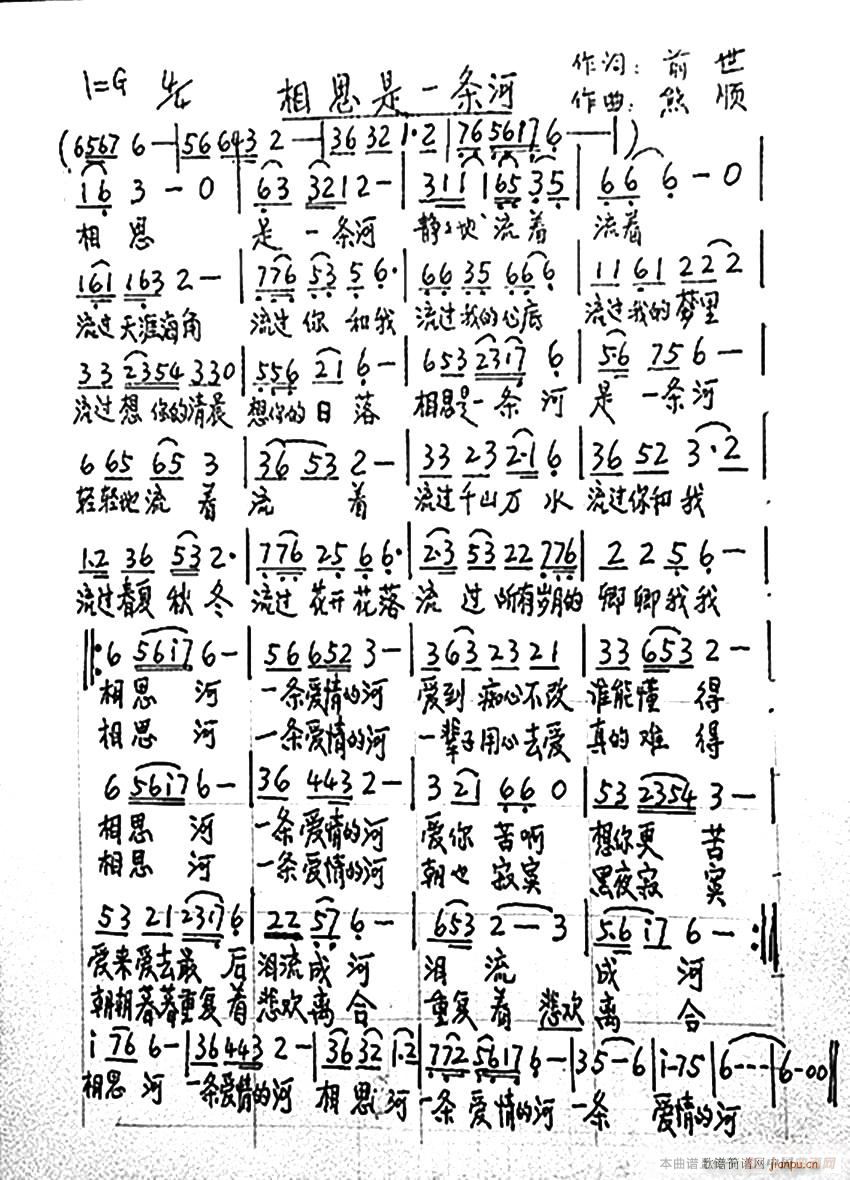 1=G 4/4 相思是一条河 作词：前世
作曲：熊顺
(6567 6-|56 643 2-|36 32 1·2|76 5617 6--|)
16 3 - 0 | 63 321 2- | 311 165 35 | 66 6 - 0 |
相思 是一条河 静静地流着 流着
161 163 2- | 776 53 5 6· | 66 35 66 6 | 11 61 22 2 |
流过天涯海角 流过你和我 流过我的心底 流过我的梦里
33 2354 330 | 556 21 6- | 653 2317 6 | 5·6 75 6- |
流过想你的清晨 想你的日落 相思是一条河 是一条河
6 65 65 3 | 36 53 2- | 33 23 2·1 6 | 36 52 3·2 |
轻轻地流着 流着 流过千山万水 流过你和我
1·2 36 53 2· | 776 25 6 6· | 2·3 53 22 776 | 2 2 5 6- |
流过春夏秋冬 流过花开花落 流过所有岁月的 卿卿我我
‖: 6 56i7 6- | 56 652 3- | 363 23 21 | 33 653 2- |
相思河 一条爱情的河 爱到痴心不改 谁能懂得
相思河 一条爱情的河 一辈子用心去爱 真的难得
6 56i7 6- | 36 443 2- | 3 21 66 0 | 53 2354 3- |
相思河 一条爱情的河 爱你苦啊 想你更苦
相思河 一条爱情的河 朝也寂寞 黑夜寂寞
53 21 2317 6 | 22 57 6- | 653 2--3 | 5·6 i7 6- :‖
爱来爱去最后 泪流成河 泪流成河
朝朝暮暮重复着 悲欢离合 重复着 悲欢离合
i 76 6- | 36 443 2- | 36 32 1·2 | 772 5617 6- | 35-6 | i-75 | 6--- | 6-00 ‖
相思河 一条爱情的河 相思河 一条爱情的河 一条 爱情的河
本曲谱上 歌谱简谱网 jianpu.cn